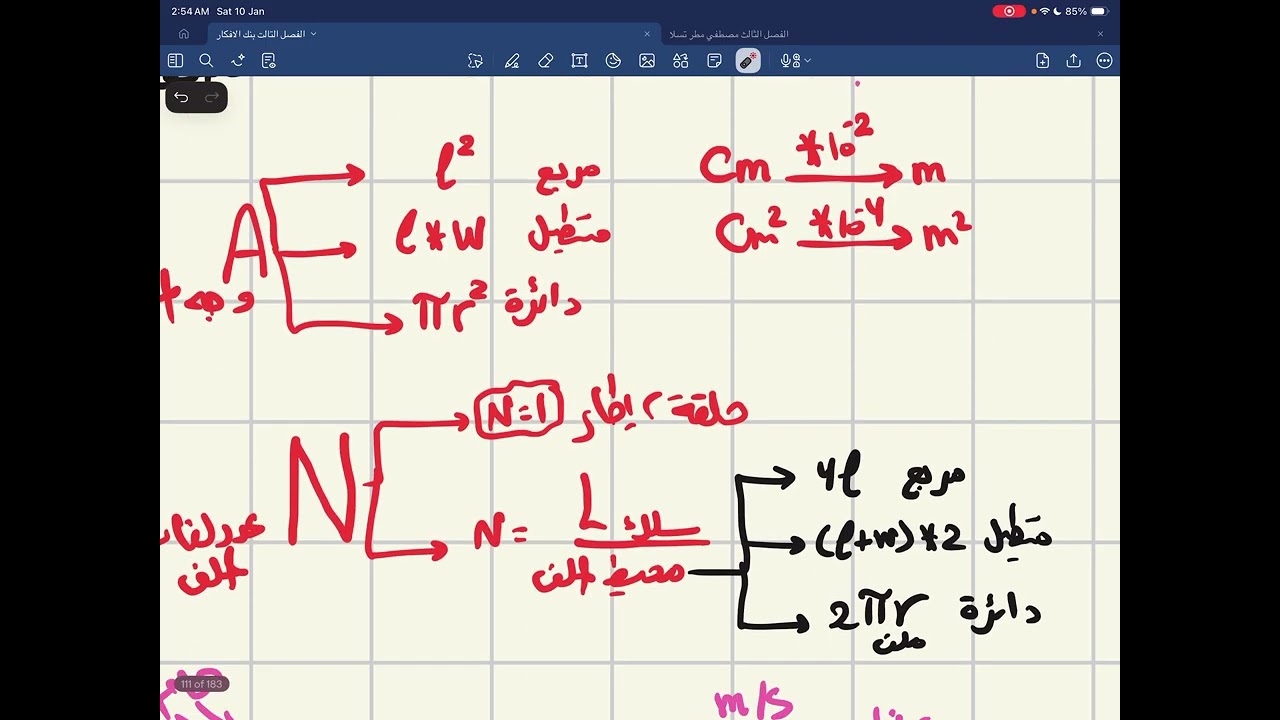 2:54 AM Sat 10 Jan 85%
الفصل الثالث بنك الافكار
الفصل الثالث مصطفي مطر تسلا
A
l² مربع
l*w مستطيل
πr² دائرة
Cm *10⁻² m
Cm² *10⁻⁴ m²
N
N=1 حلقة، إطار
N = L سلك
محيط الملف
عدد لفات
الملف
4l مربع
(l+w)*2 مستطيل
2πr دائرة
ملف
111 of 183
m/s